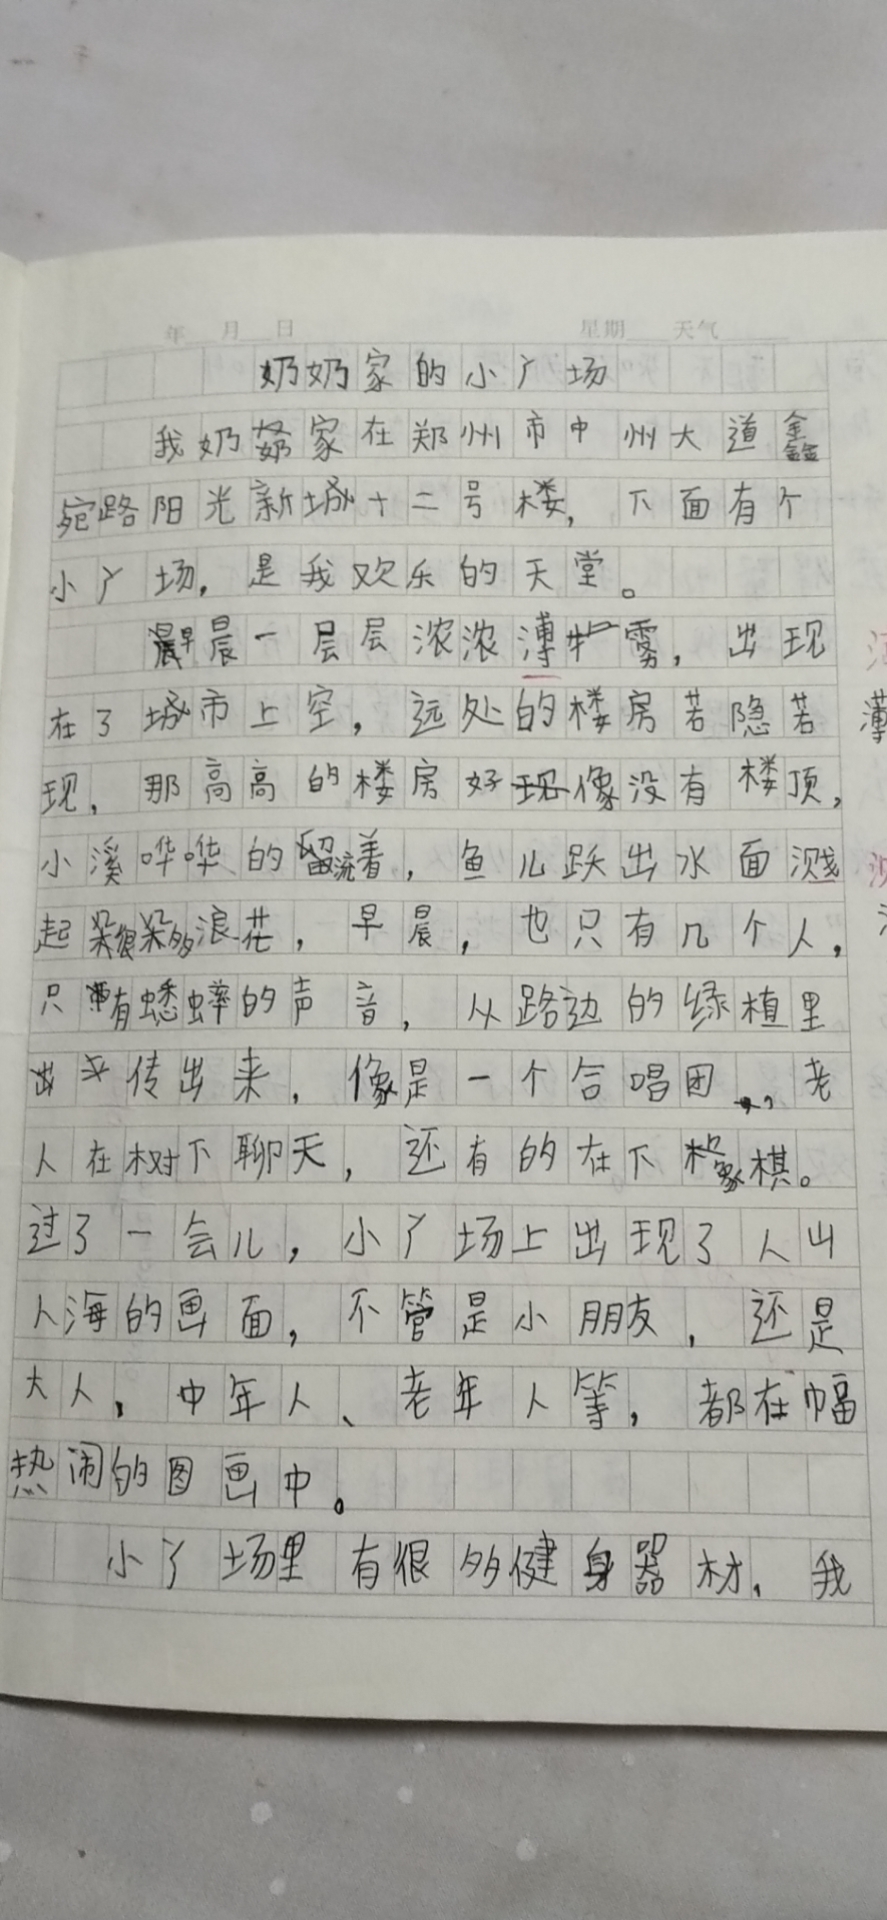 年 月 日 星期 天气
奶奶家的小广场
我奶奶家在郑州市中州大道鑫
宛路阳光新城十二号楼，下面有个
小广场，是我欢乐的天堂。
早晨一层层浓浓薄雾，出现
在了城市上空，远处的楼房若隐若
现，那高高的楼房好像没有楼顶，
小溪哗哗的流着，鱼儿跃出水面溅
起很多浪花，早晨，也只有几个人，
只有蟋蟀的声音，从路边的绿植里
传出来，像是一个合唱团，老
人在树下聊天，还有的在下象棋。
过了一会儿，小广场上出现了人山
人海的画面，不管是小朋友，还是
大人，中年人、老年人等，都在幅
热闹的图画中。
小广场里有很多健身器材，我
薄